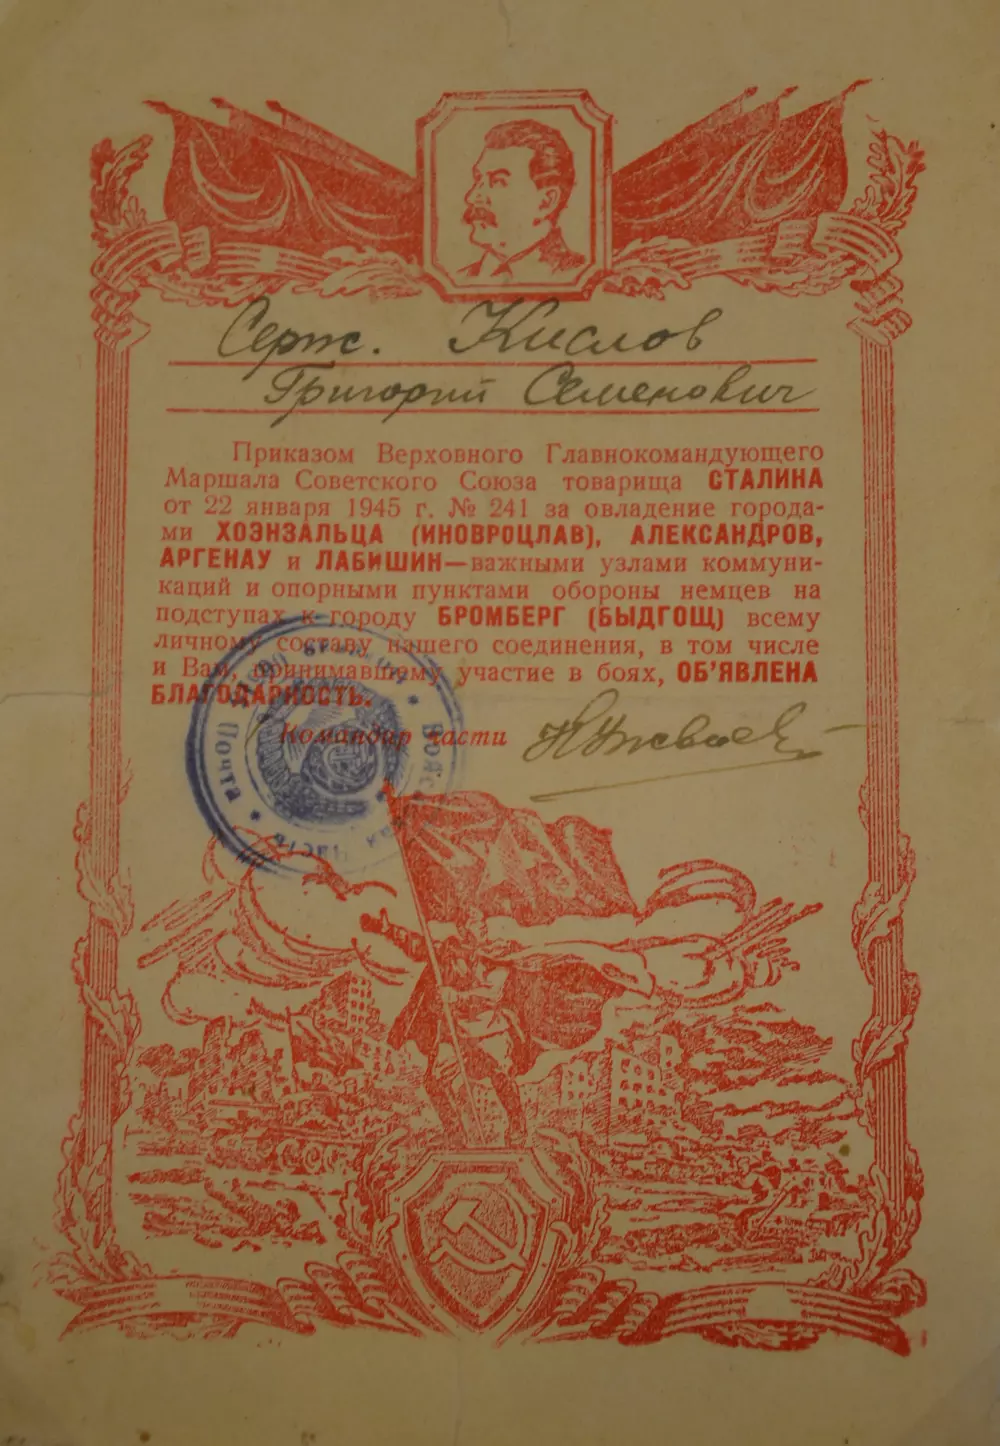 Серж. Кислов
Григорий Семенович
Приказом Верховного Главнокомандующего
Маршала Советского Союза товарища СТАЛИНА
от 22 января 1945 г. № 241 за овладение города-
ми ХОЭНЗАЛЬЦА (ИНОВРОЦЛАВ), АЛЕКСАНДРОВ,
АРГЕНАУ и ЛАБИШИН—важными узлами коммуни-
каций и опорными пунктами обороны немцев на
подступах к городу БРОМБЕРГ (БЫДГОЩ) всему
личному составу нашего соединения, в том числе
и Вам, принимавшему участие в боях, ОБ’ЯВЛЕНА
БЛАГОДАРНОСТЬ.
Командир части
Почта
Часть